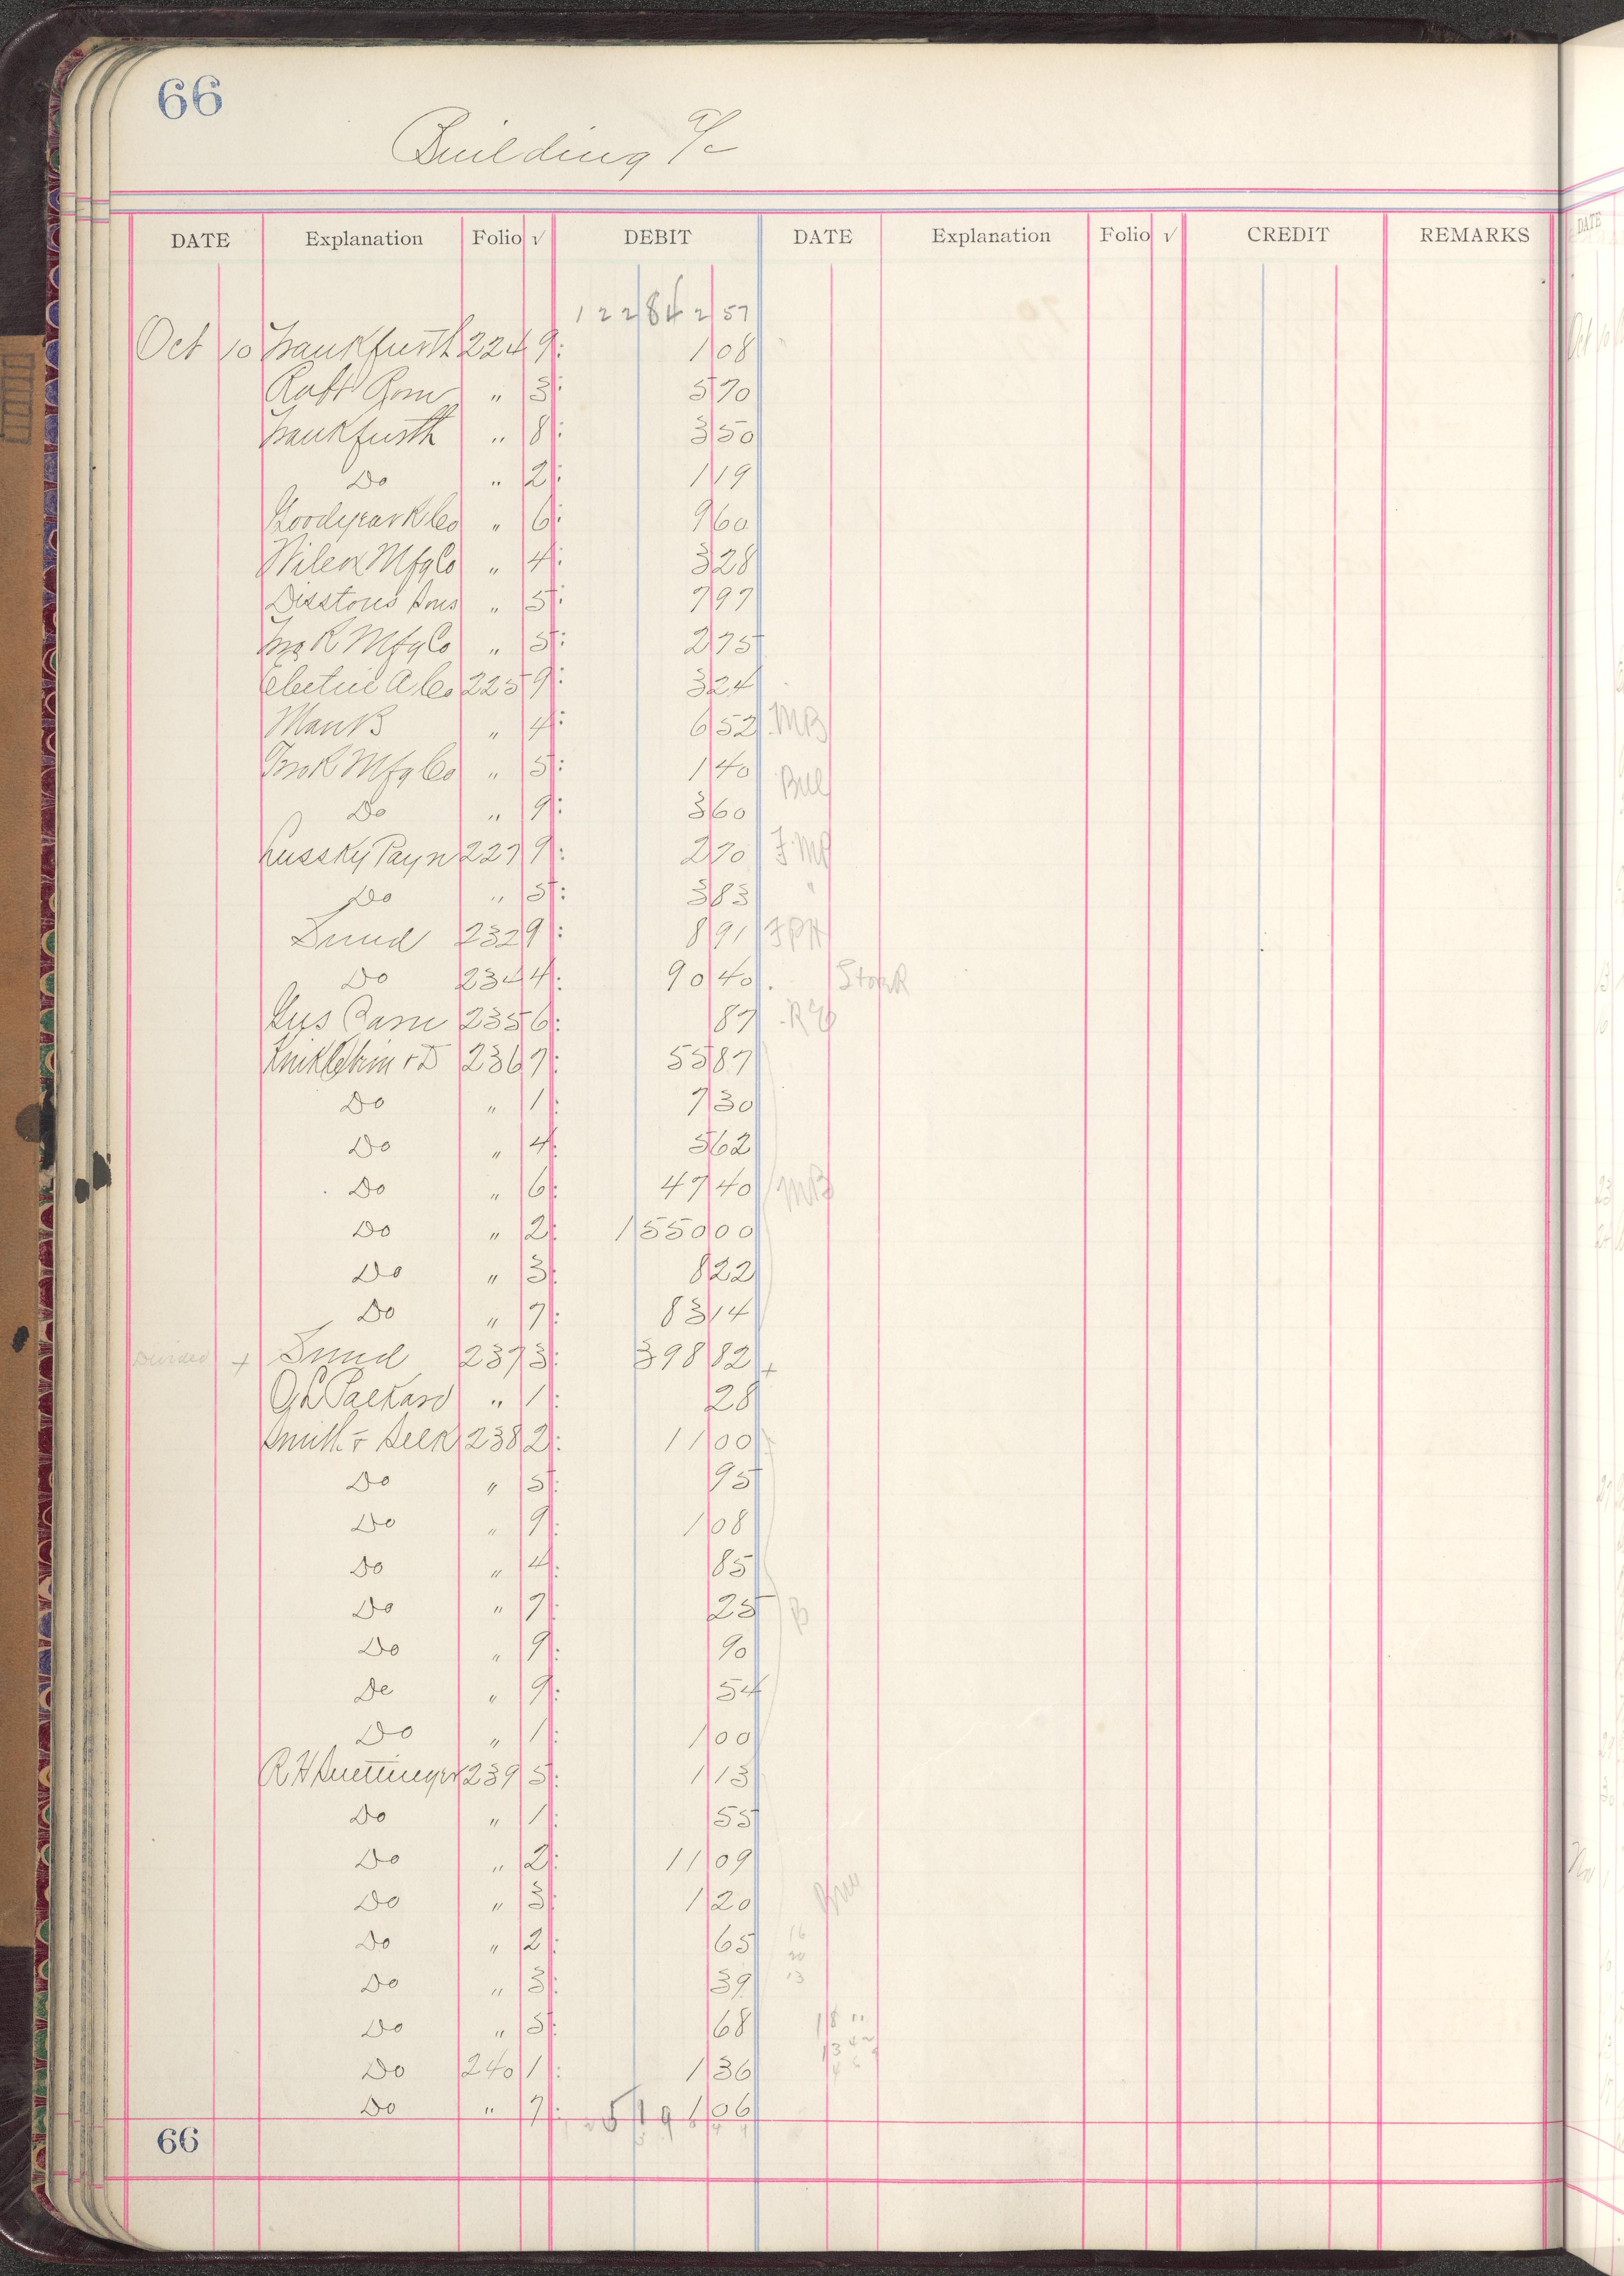 66
Building a/c
DATE Explanation Folio √ DEBIT DATE Explanation Folio √ CREDIT REMARKS
1 2 2 8 4 2 57
Oct 10 Frankfurth 224 9: 1 08
" 3: 5 70
Frankfurth " 8: 3 50
Do " 2: 1 19
Goodyear R Co " 6: 9 60
Wilcox Mfg Co " 4: 3 28
Disstons Sons " 5: 7 97
Mfg Co " 5: 2 75
Electric A Co 225 9: 3 24
Mark B " 4: 6 52 MB
Mfg Co " 5: 1 40
Do " 9: 3 60
Lussky Payn 227 9: 2 70
Do " 5: 3 83 "
Sund 232 9: 8 91
Do 234 4: 90 40 Stock
Gus 235 6: 87
236 7: 55 87
Do " 1: 7 30
Do " 4: 5 62
Do " 6: 47 40 MB
Do " 2: 1 550 00
Do " 3: 8 22
Do " 7: 83 14
Divided + Sund 237 3: 398 82 +
O L Packard " 1: 28
Smith & 238 2: 11 00
Do " 5: 95
Do " 9: 1 08
Do " 4: 85
Do " 7: 25 B
Do " 9: 90
De " 9: 54
Do " 1: 1 00
R H 239 5: 1 13
Do " 1: 55
Do " 2: 11 09
Do " 3: 1 20
Do " 2: 65 16
Do " 3: 39 13
Do " 5: 68
Do 240 1: 1 36
Do " 7: 1 06
66